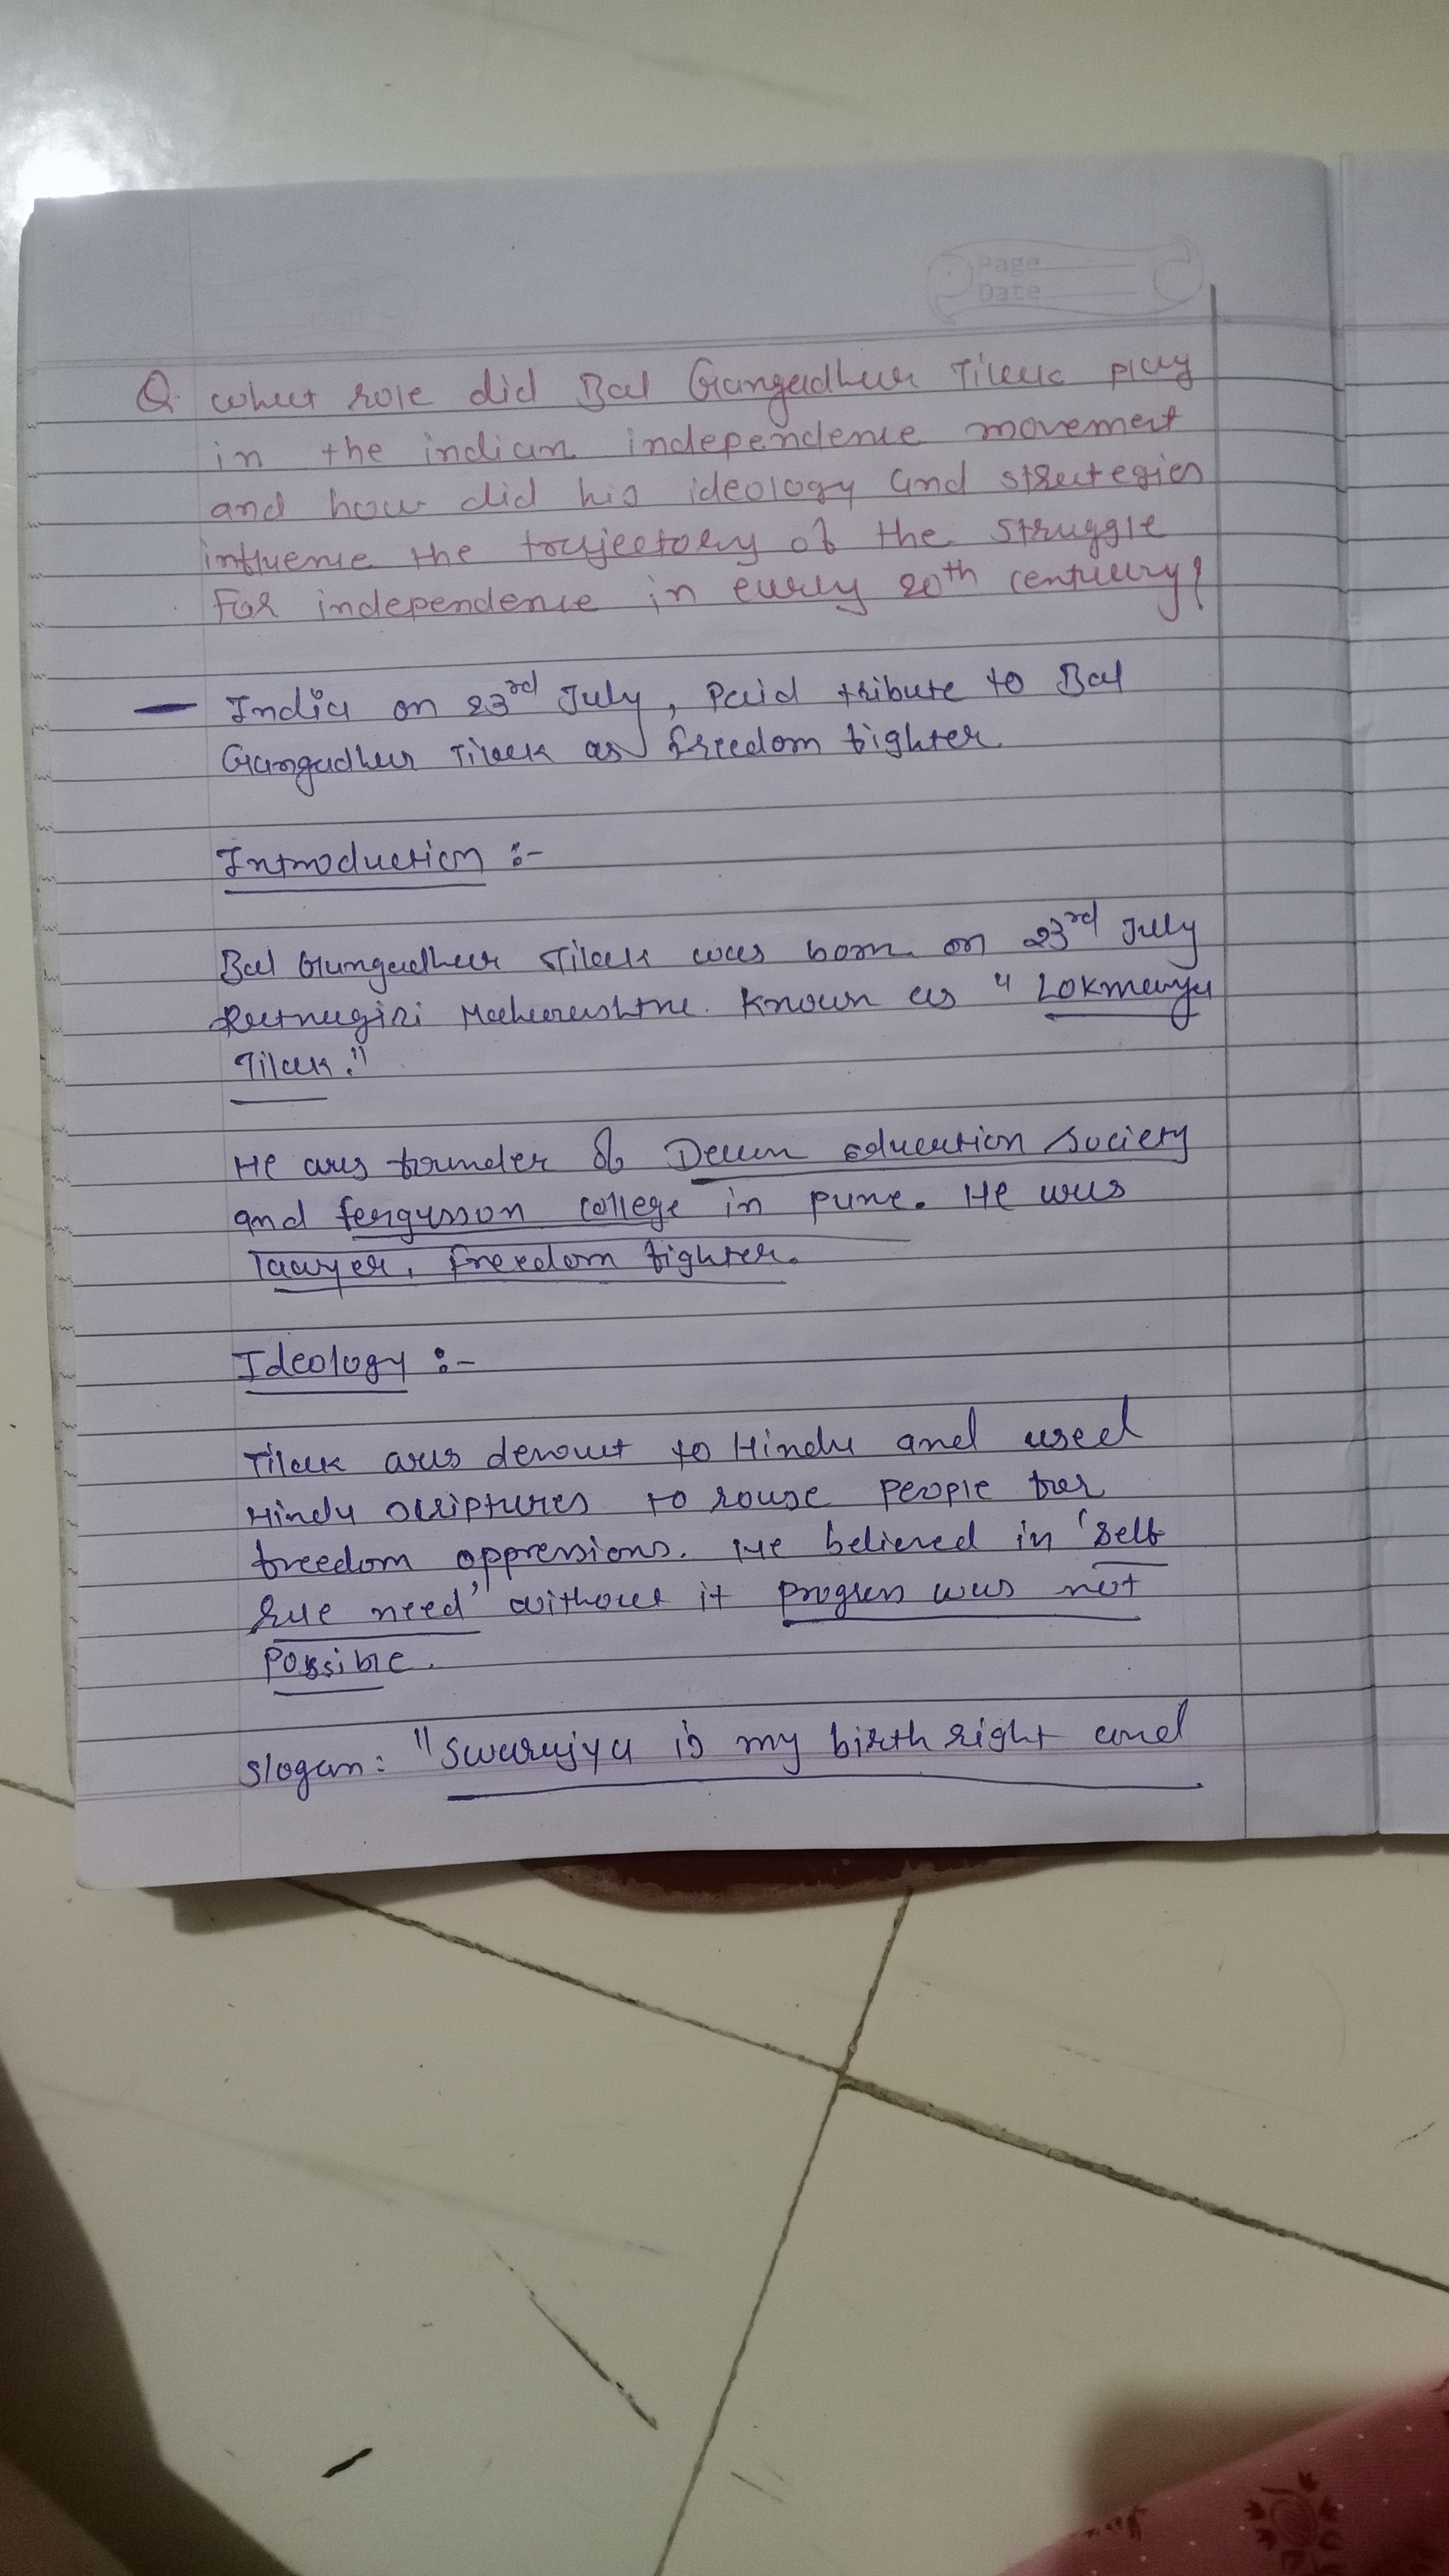 Page
Date
Q. what role did Bal Gangadhar Tilak play
in the indian independence movement
and how did his ideology and strategies
influence the trajectory of the struggle
for independence in early 20th century?
— India on 23rd July, Paid tribute to Bal
Gangadhar Tilak as freedom fighter.
Introduction :-
Bal Gangadhar Tilak was born on 23rd July
Ratnagiri Maharashtra. Known as " Lokmanya
Tilak."
He was founder of Deccan education society
and fergusson college in pune. He was
lawyer, freedom fighter.
Ideology :-
Tilak was devout to Hindu and used
Hindu scriptures to rouse people for
freedom oppressions. He believed in 'self
rule need' without it progress was not
possible.
slogan: "Swarajya is my birth right and